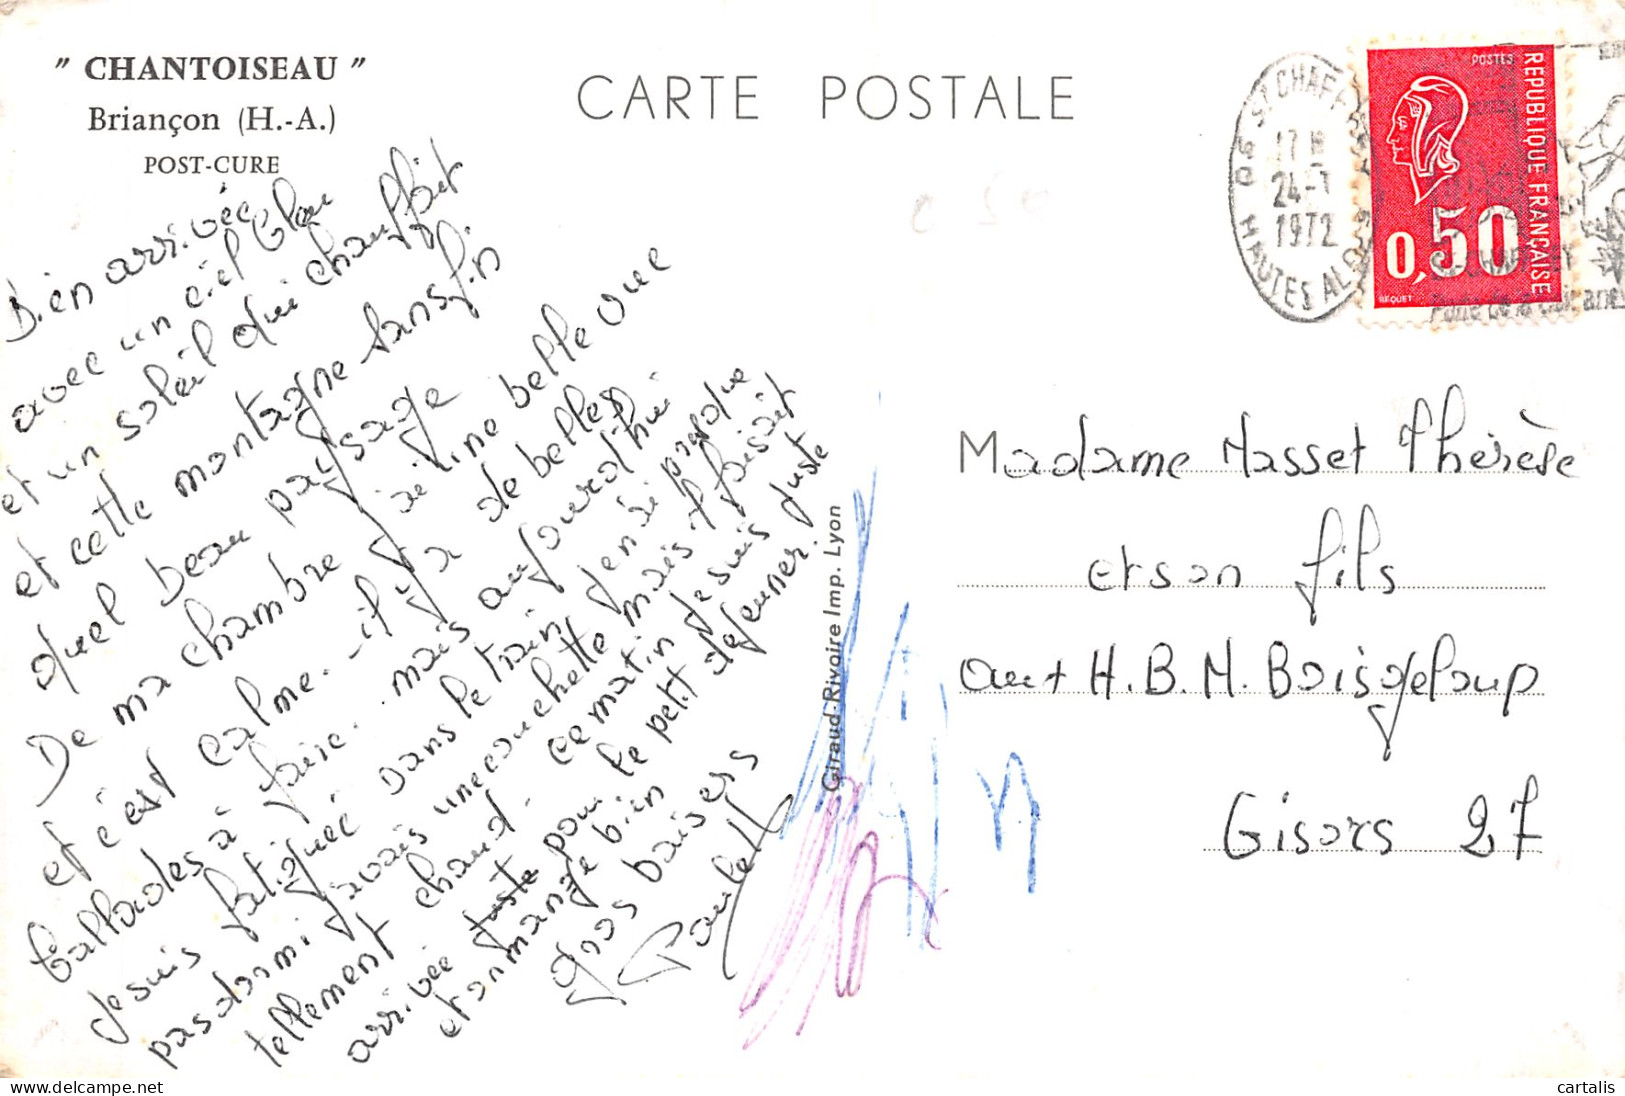 " CHANTOISEAU "
Briançon (H.-A.)
POST-CURE
CARTE POSTALE
Bien arrivée
avec un ciel bleu
et un soleil qui chauffait
et cette montagne sans fin
quel beau paysage
De ma chambre j'ai une belle vue
et c'est calme. - il y a de belles
ballades à faire. mais aujourd'hui
je suis fatiguée dans le train j'en ai presque
pas dormi j'avais une couchette mais il faisait
tellement chaud. ce matin je suis juste
arrivée juste pour le petit déjeuner.
et on mange bien
gros baisers
Paulette
Giraud-Rivoire Imp. Lyon
05 ST CHAFFREY
HAUTES ALPES
17 H
24-7
1972
POSTES
REPUBLIQUE FRANÇAISE
0,50
BEQUET
Madame Masset Thérèse
et son fils
aux H.B.M. Boisgeloup
Gisors 27
cartalis